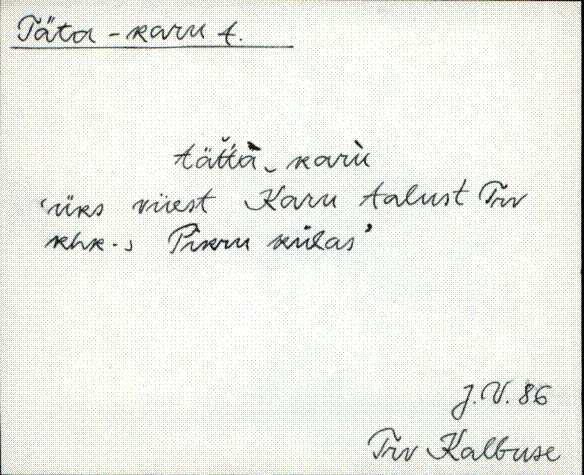 Täta-karu t.
tät̆tà‿karù
'üks viiest Karu talust Trv
khk-s Pikru külas'
J.V. 86
Trv Kalbuse